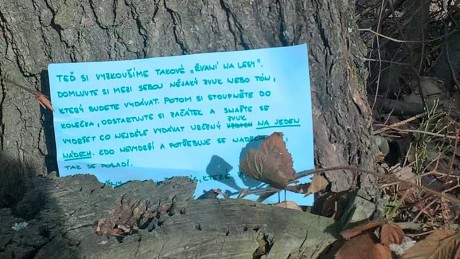 TEĎ SI VYZKOUŠÍME TAKOVÉ „ŘVANÍ NA LESY".
DOMLUVTE SI MEZI SEBOU NĚJAKÝ ZVUK NEBO TÓN,
KTERÝ BUDETE VYDÁVAT. POTOM SI STOUPNĚTE DO
KOLEČKA, ODSTARTUJTE SI ZAČÁTEK A SNAŽTE SE
VYDRŽET CO NEJDÉLE VYDÁVAT URČENÝ ZVUK NA JEDEN
NÁDECH. KDO NEVYDRŽÍ A POTŘEBUJE SE
TAK SE POSADÍ.